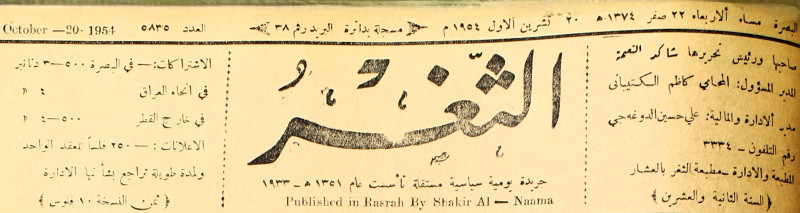 البصرة مساء الاربعاء ٢٢ صفر ١٣٧٤ هـ ٢٠ تشرين الاول ١٩٥٤ م مسجلة بدائرة البريد رقم ٣٨ العدد ٥٨٣٥ October —20- 1954
صاحبها ورئيس تحريرها شاكر النعمة
المدير المسؤول: المحامي كاظم الكتيباني
مدير الادارة والمالية: علي حسين الدوغه جي
رقم التلفون - ٣٣٣٤
المطبعة والادارة - مطبعة الثغر بالعشار
﴿ السنة الثانية والعشرين ﴾
الثغر
جريدة يومية سياسية مستقلة تأسست عام ١٣٥١ هـ - ١٩٣٣
Published in Basrah By Shakir Al — Naama
الاشتراكات: — في البصرة ٥٠٠-٣ دنانير
في انحاء العراق ٤ »
في خارج القطر ٥٠٠-٤ »
الاعلانات: — ٢٥٠ فلساً للعقد الواحد
ولمدة طويلة تراجع بشأنها الادارة
﴿ ثمن النسخة ١٠ فلوس ﴾